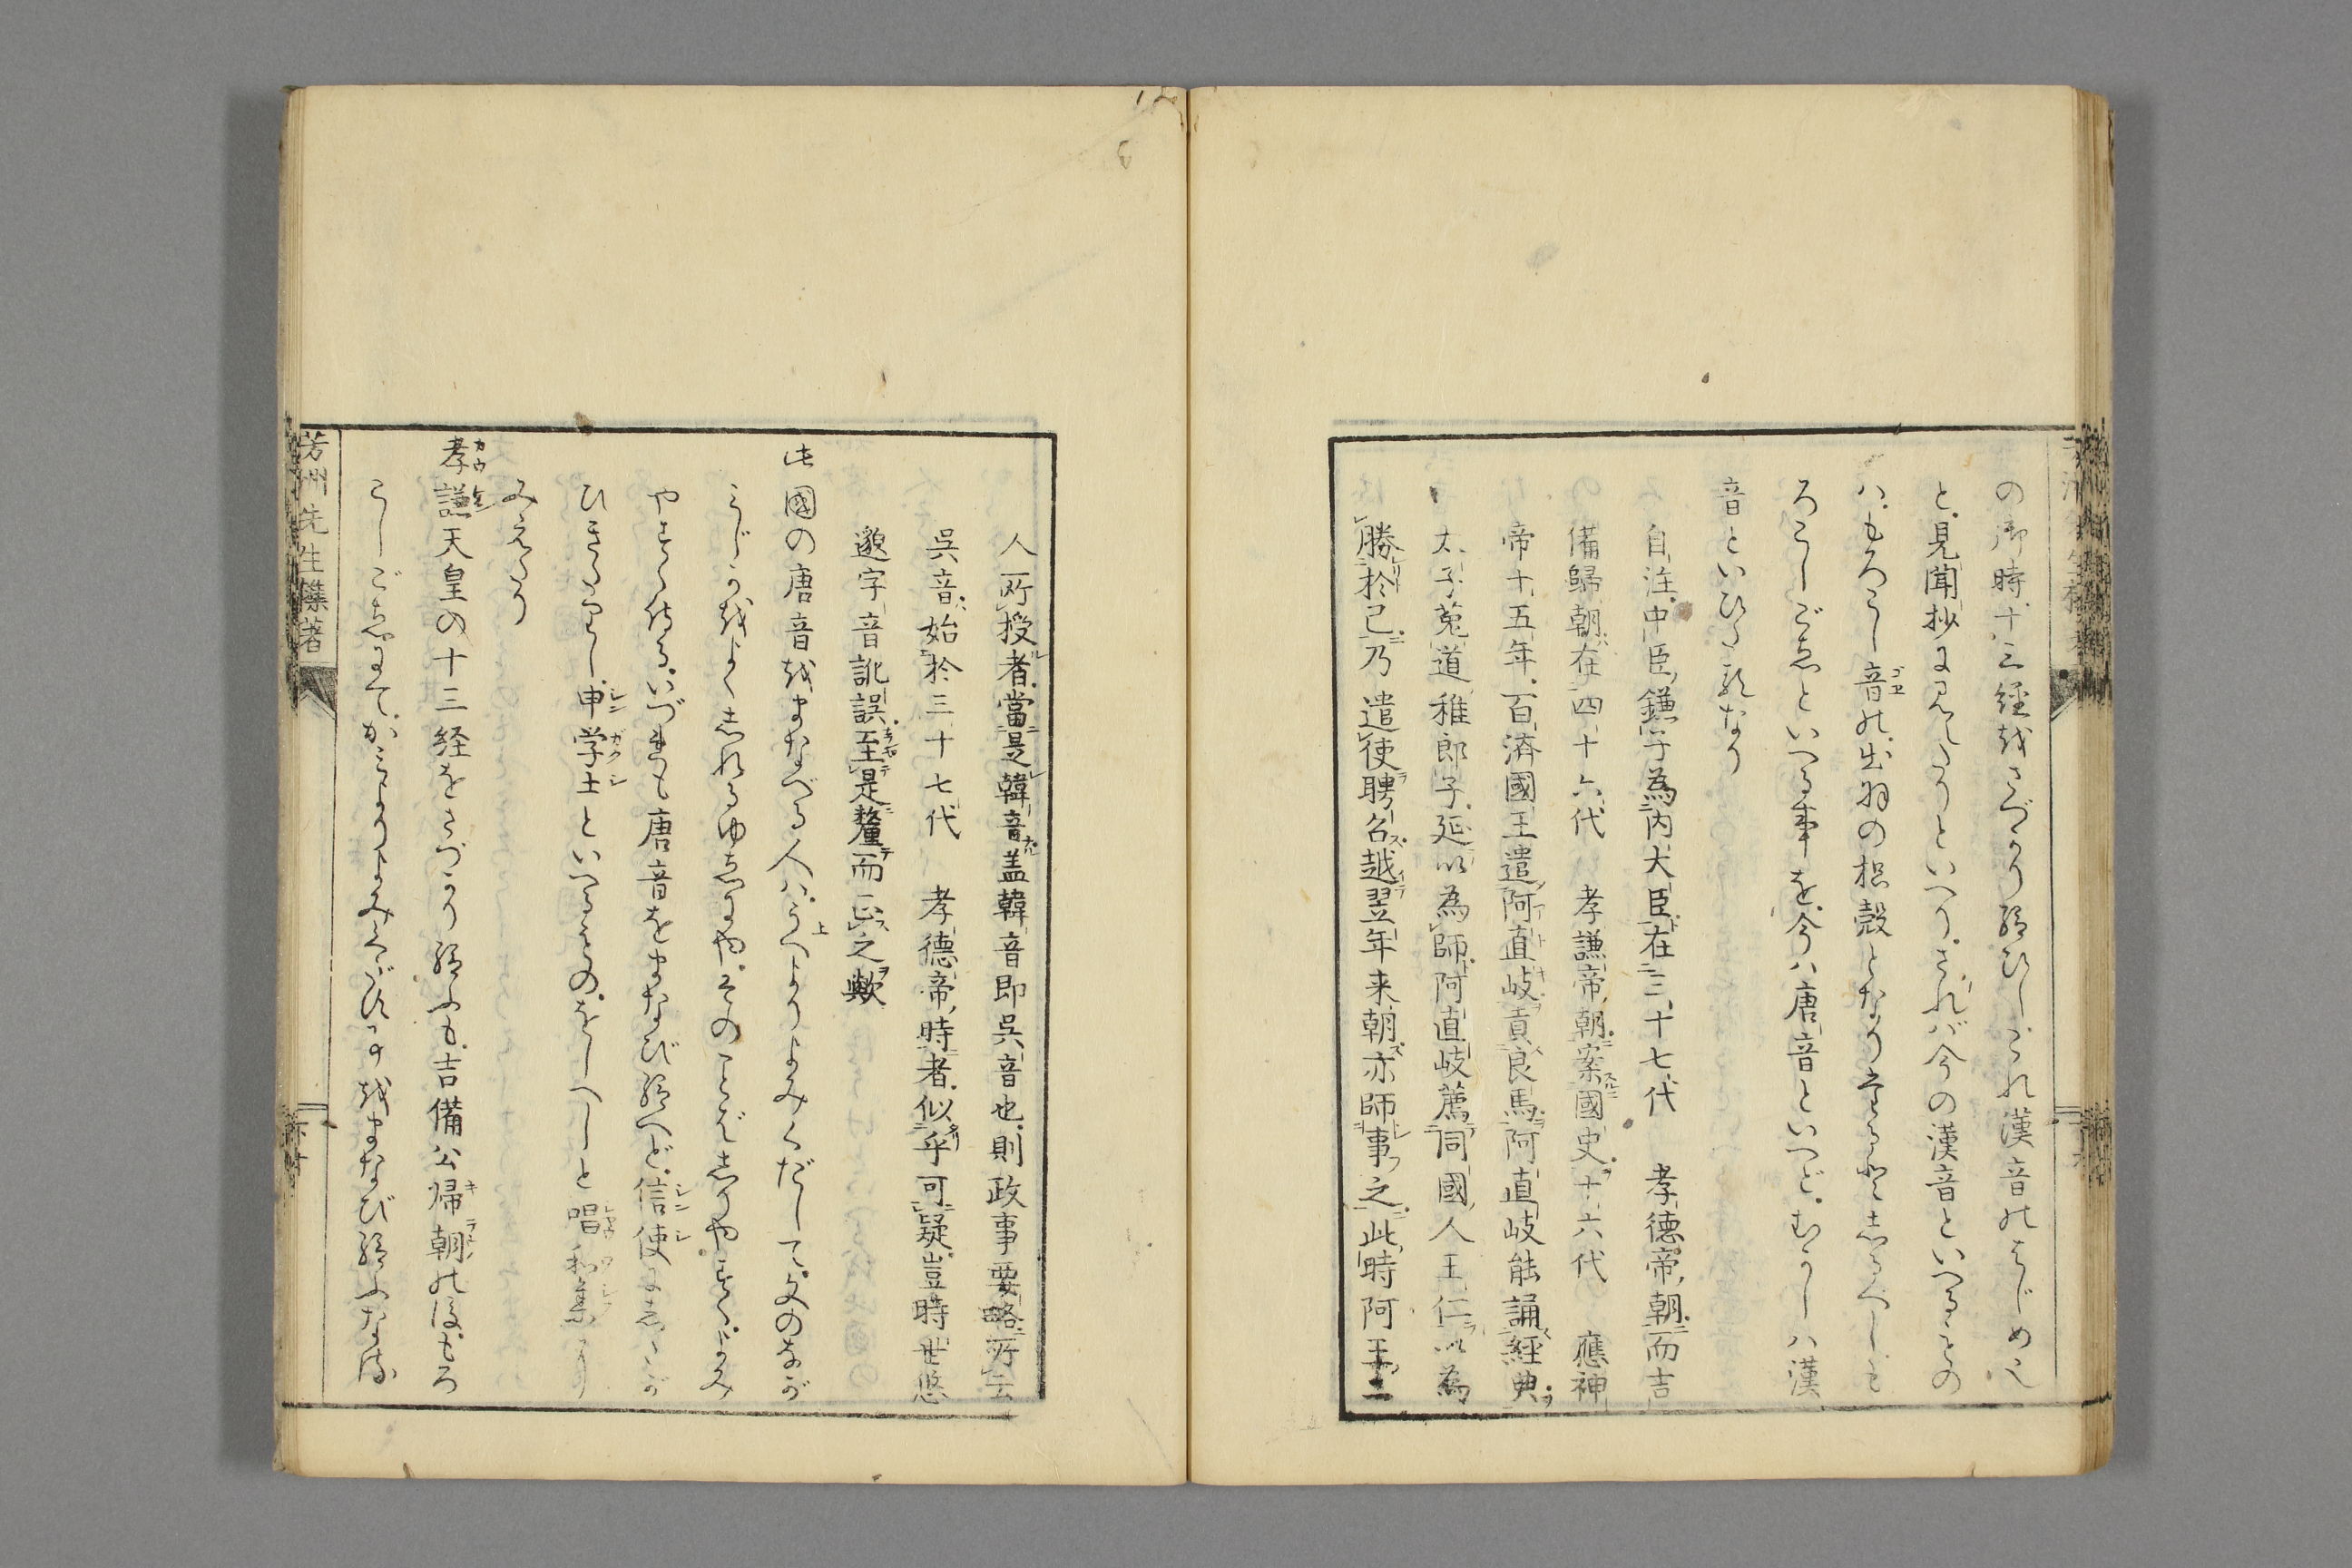 の御時十三経をさづかり給ひしこれ漢音のはじめ也
と見聞抄に見えたりといへりされば今の漢音といへるもの
ハもろこし音の出羽の枳殻となりたると志るべしも
ろこしごゑといへる事を今ハ唐音といへどむかしハ漢
音といひたるなり
自注中臣鎌子為内大臣在三十七代 孝徳帝朝而吉
備歸朝在四十六代 孝謙帝朝案國史十六代 應神
帝十五年百済國王遣阿直岐貢良馬阿直岐能誦経典
太子菟道稚郎子延以為師阿直岐薦同國人王仁以為
勝於己乃遣使聘名越翌年来朝亦師事之此時阿王二
人所授者當是韓音盖韓音即呉音也則政事要略所云
呉音始於三十七代 孝德帝時者似乎可疑豈時世悠
邈字音訛誤至是釐而正之歟
此國の唐音をまなべる人ハうへよりよみくだして文のなが
みじかをよく志れるゆゑにやそのことば志りやすくよみ
やすく侍るいづれも唐音をまなび給へど信使に志たが
ひきたりし申学士といへるもののをしへしと唱和集にも
みえたり
孝謙天皇の十三経をさづかり給ふも吉備公帰朝の後もろ
こしごゑにてかみよりよみくだす事をまなび給ふなる
芳洲先生雜著